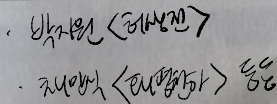 · 박지원 <허생전>
· 채만식 <태평천하> 등등